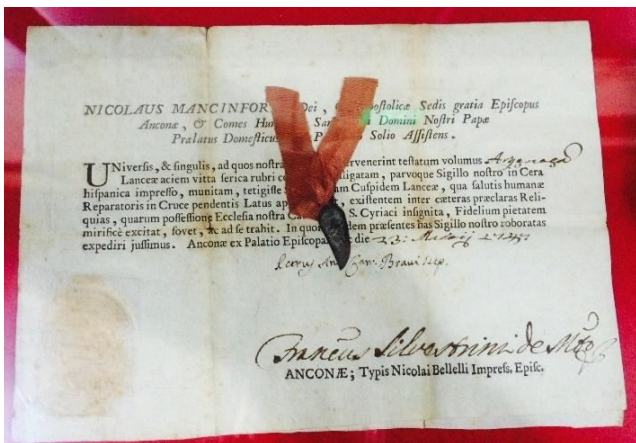 NICOLAUS MANCINFOR Dei, & Apoſtolicæ Sedis gratia Epiſcopus
Anconæ, & Comes Hum San Domini Noſtri Papæ
Prælatus Domeſticus P Solio Aſſiſtens.
UNiverſis, & ſingulis, ad quos noſtra ervenerint teſtatum volumus
Lanceæ aciem vitta ſerica rubri co ligatam, parvoque Sigillo noſtro in Cera
hiſpanica impreſſo, munitam, tetigiſſe S am Cuſpidem Lanceæ, qua ſalutis humanæ
Reparatoris in Cruce pendentis Latus ap , exiſtentem inter cæteras præclaras Reli-
quias, quarum poſſeſſione Eccleſia noſtra Ca S. Cyriaci inſignita, Fidelium pietatem
mirificè excitat, fovet, & ad ſe trahit. In quor dem præſentes has Sigillo noſtro roboratas
expediri juſſimus. Anconæ ex Palatio Epiſcopa die 23.
Francus Silvestrini de
ANCONÆ; Typis Nicolai Bellelli Impreſſ. Epiſc.